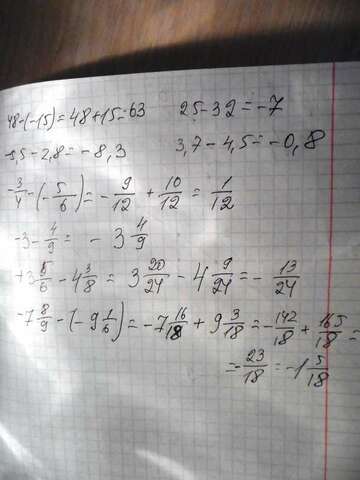 48-(-15)=48+15=63 25-32=-7
-5,5-2,8=-8,3 3,7-4,5=-0,8
-3/4-(-5/6)=-9/12+10/12=1/12
-3-4/9=-3 4/9
+3 5/6-4 3/8=3 20/24-4 9/24=-13/24
-7 8/9-(-9 1/6)=-7 16/18+9 3/18=-142/18+165/18=
=-23/18=-1 5/18